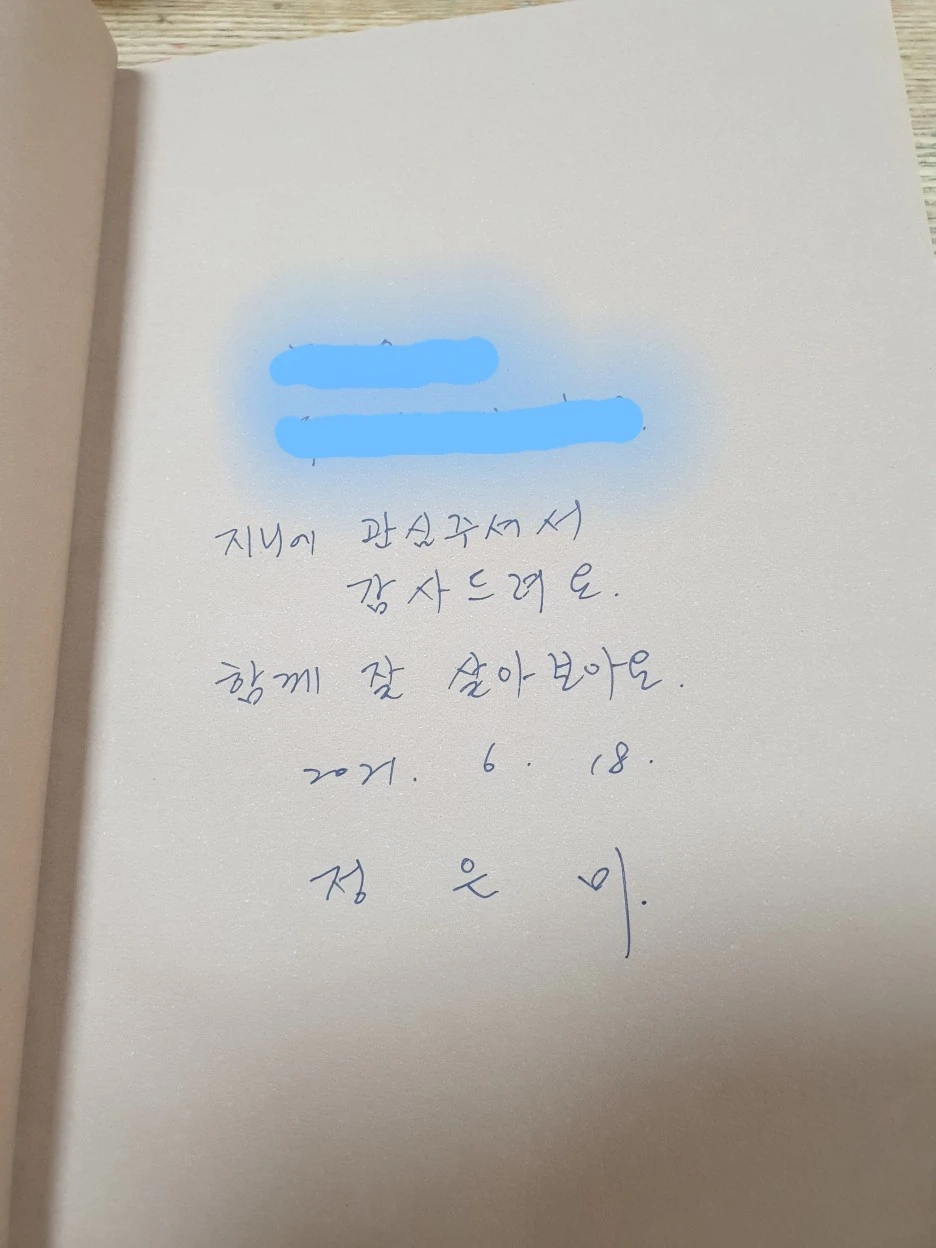 지니에 관심주셔서
감사드려요.
함께 잘 살아보아요.
2021. 6. 18.
정은미.